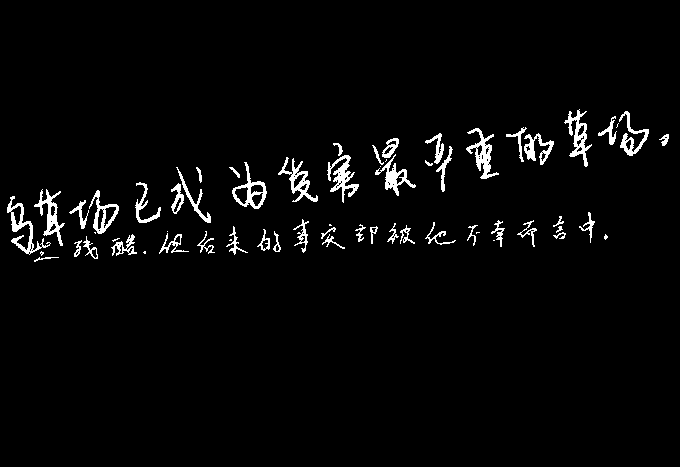 乌草场已成为发害最严重的草场。
些残酷.但后来的事实却被他不幸而言中.